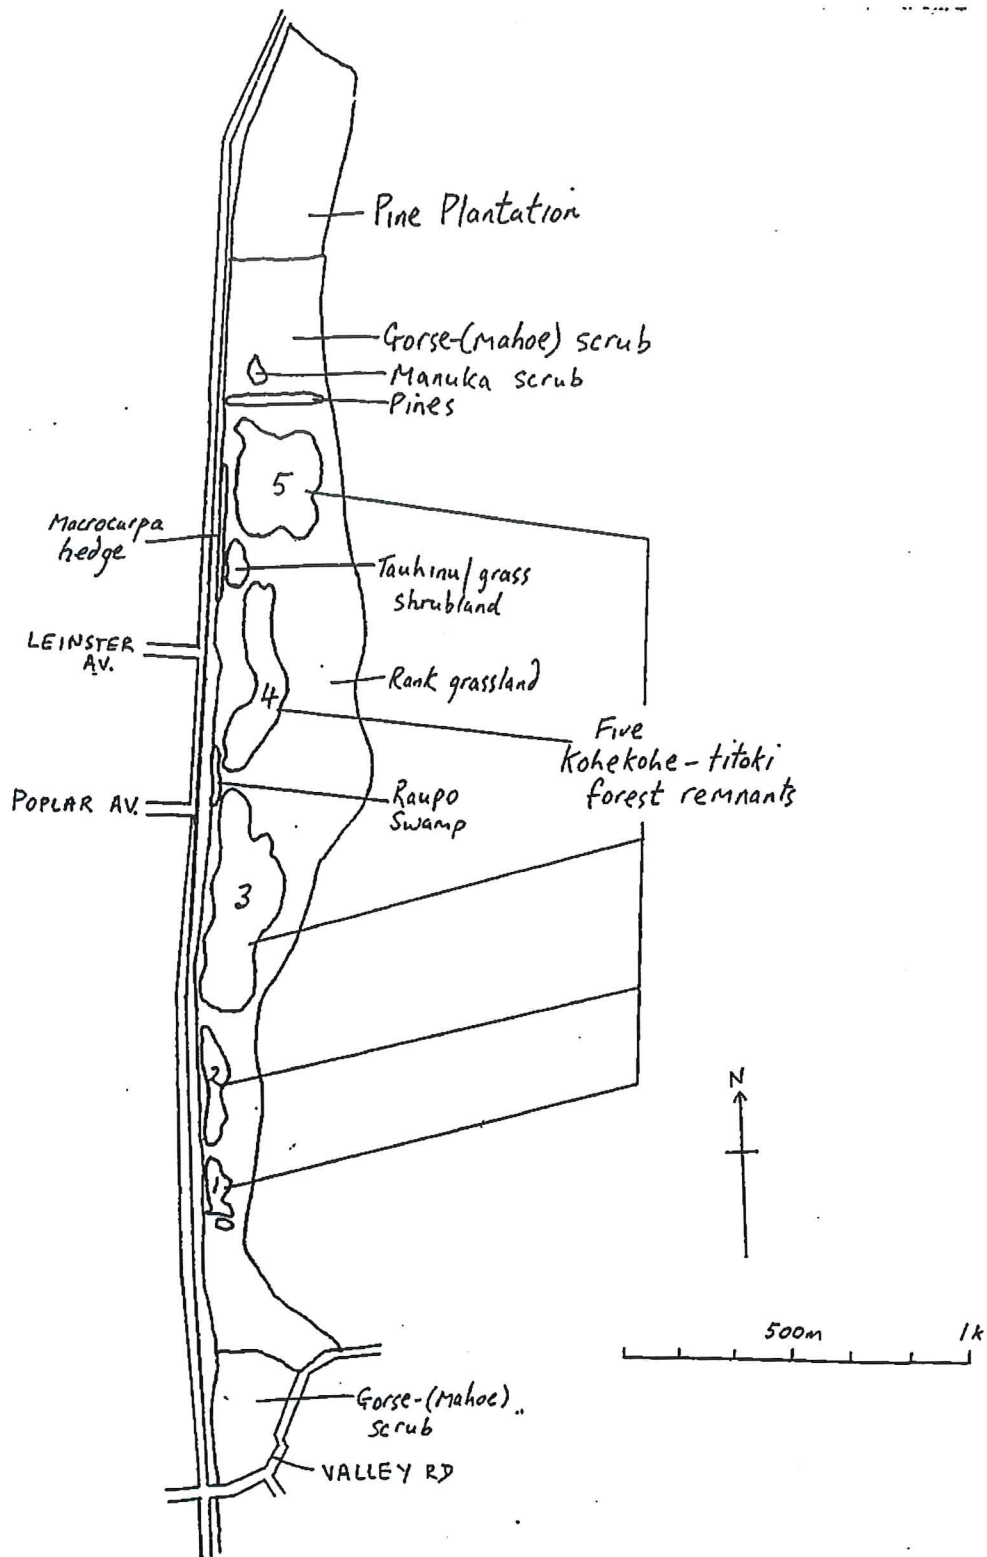 Pine Plantation
Gorse-(mahoe) scrub
Manuka scrub
Pines
5
Macrocarpa
hedge
Tauhinu/grass
shrubland
LEINSTER
AV.
4
Rank grassland
Five
Kohekohe-titoki
forest remnants
POPLAR AV.
Raupo
Swamp
3
2
N
1
500m
1k
Gorse-(mahoe)
scrub
VALLEY RD